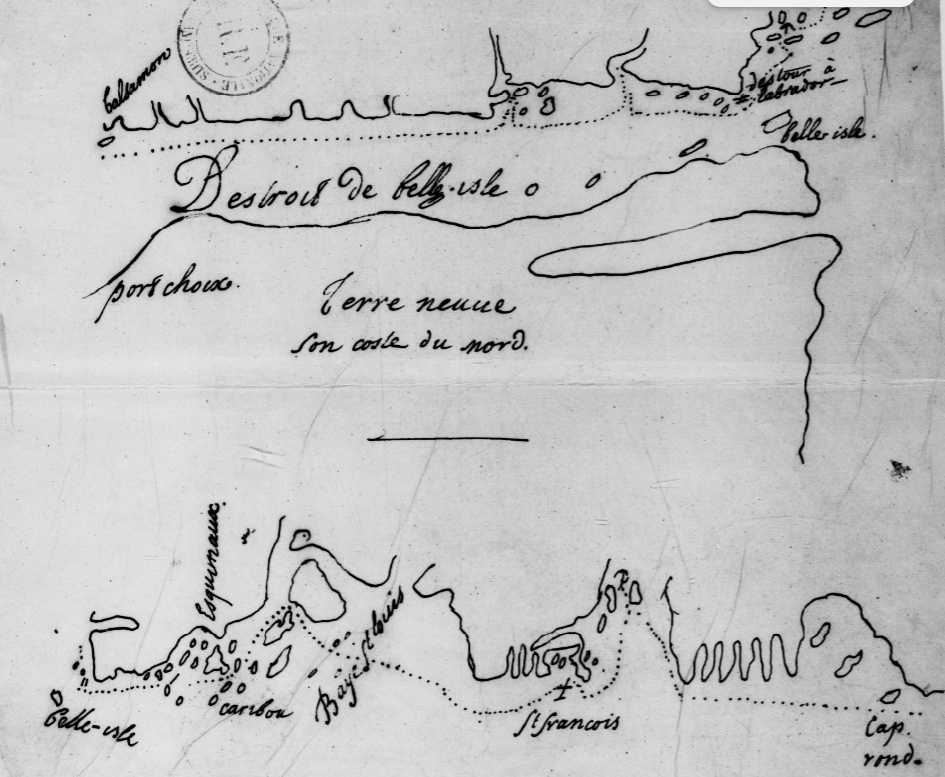 baltamon
destour à
labrador
belle isle.
Destroit de belle-isle
port choix.
Terre neuue
son coste du nord.
Esquimaux.
Baye St louis
caribou
Belle-isle
St francois
Cap.
rond.